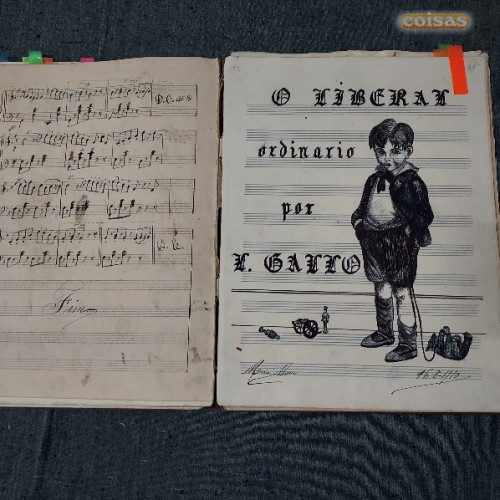 coisas
D.C. al %
Fim
O LIBERAL
ordinario
por
L. GALLO